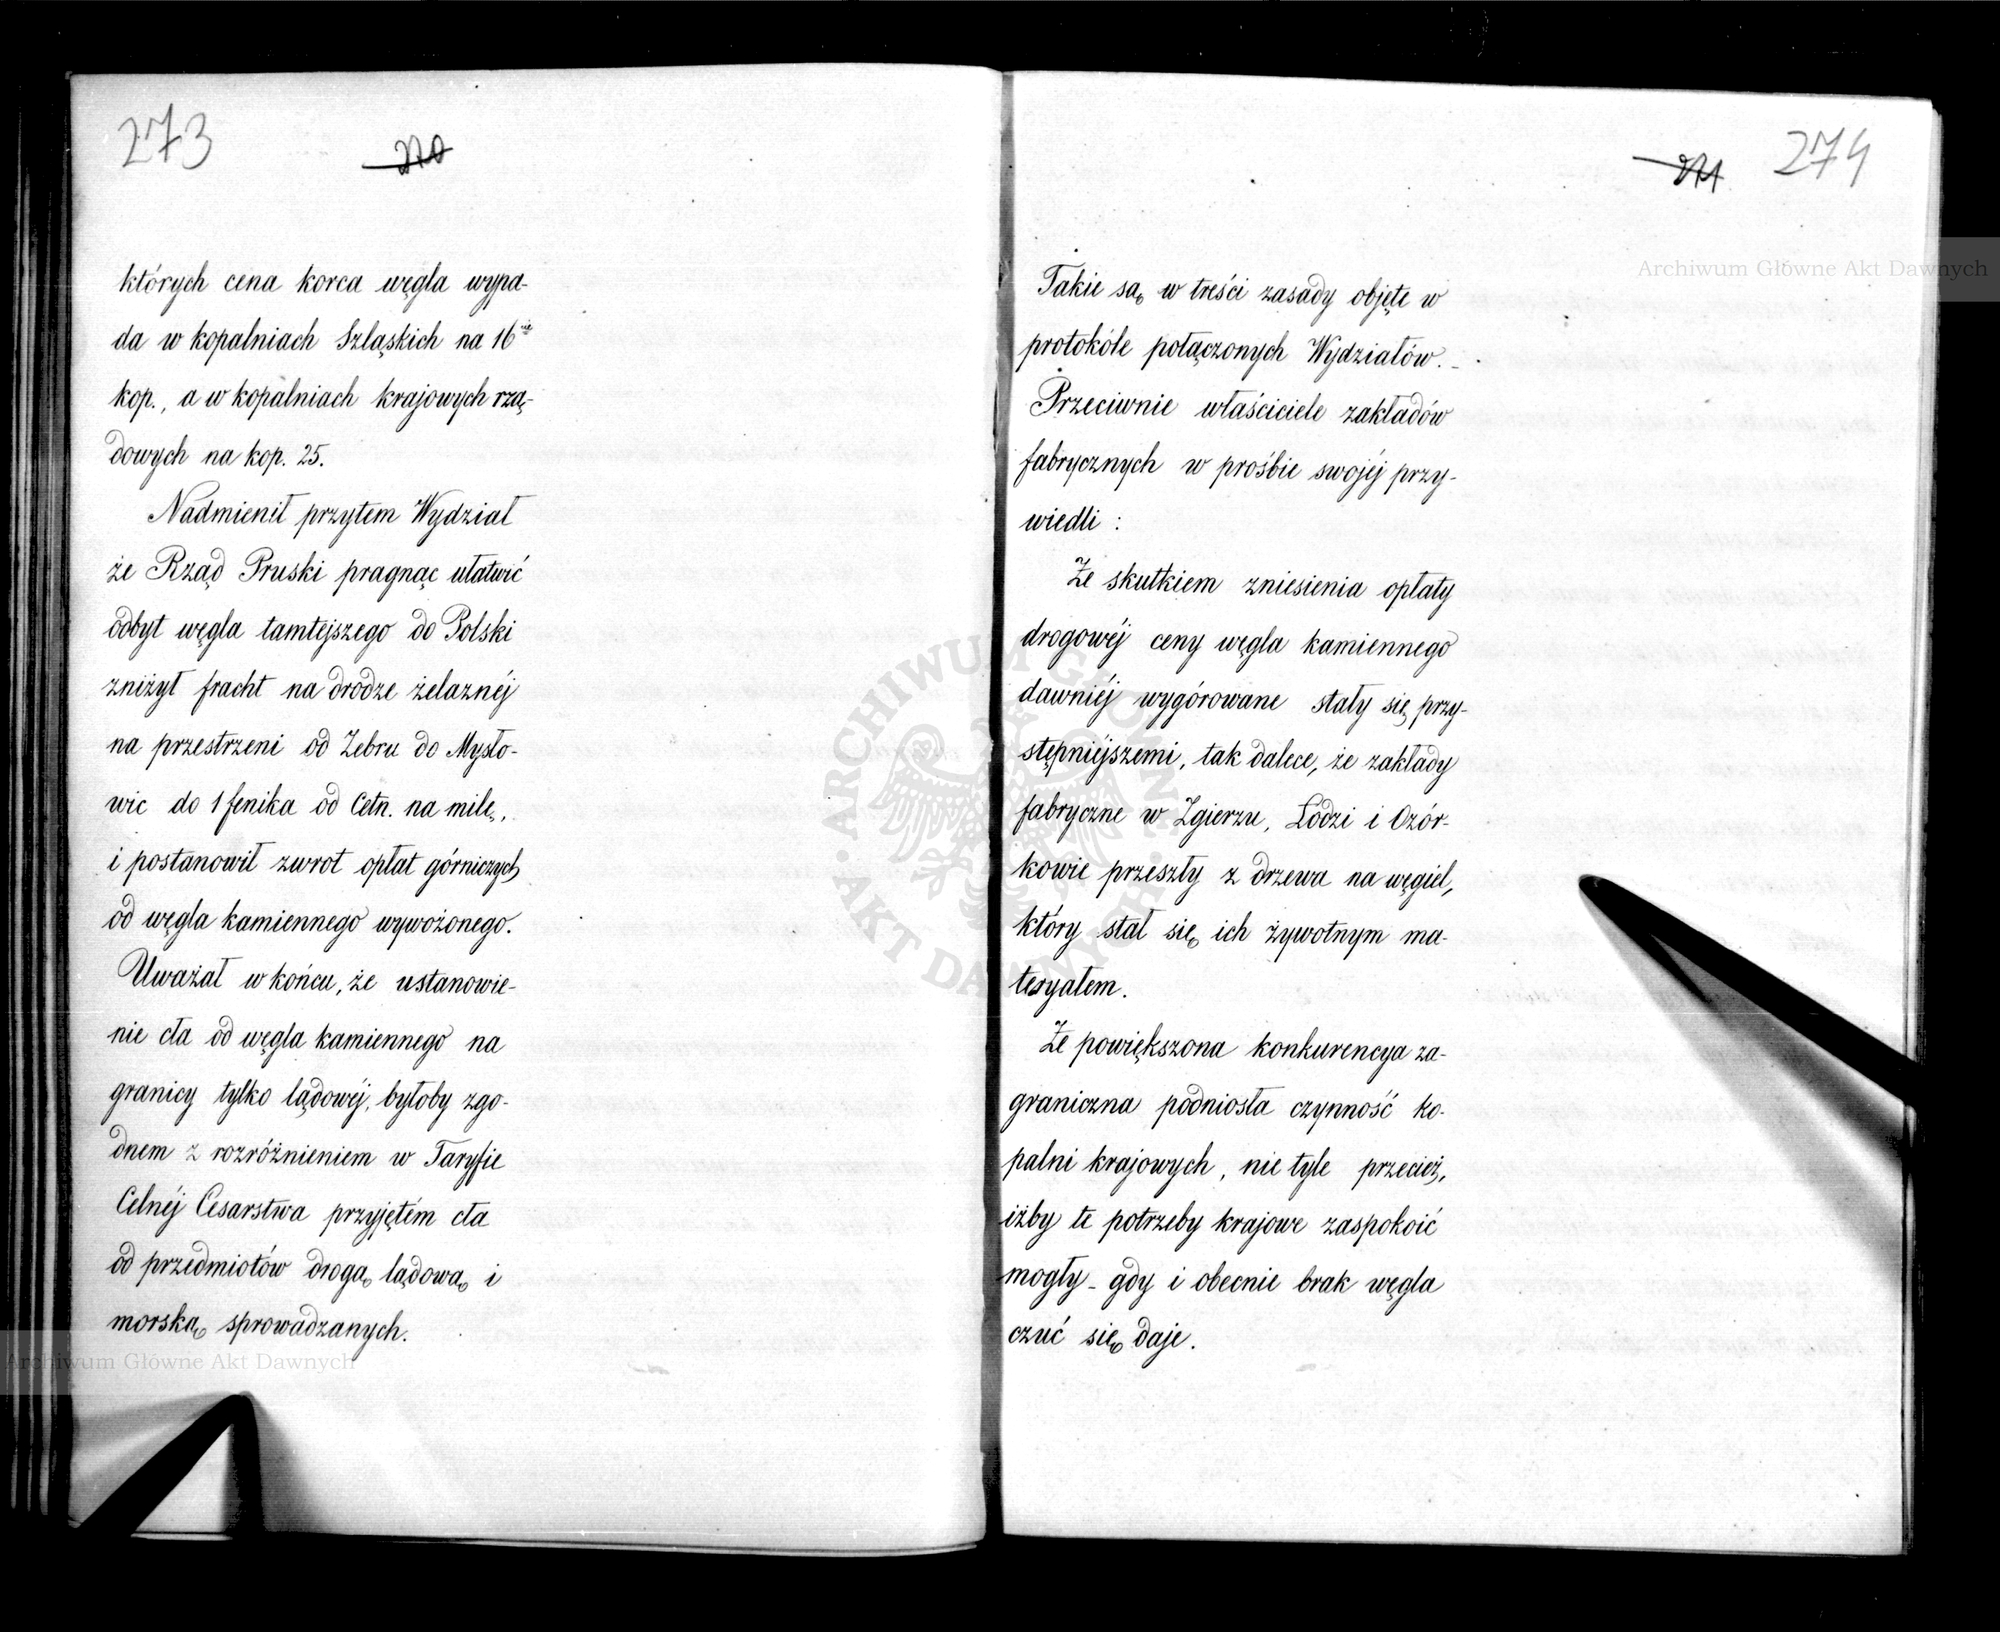 273
270
których cena korca węgla wypa-
da w kopalniach Szląskich na 16
kop., a w kopalniach krajowych rzą-
dowych na kop. 25.
Nadmienił przytem Wydział
że Rząd Pruski pragnąc ułatwić
odbyt węgla tamtejszego do Polski
zniżył fracht na drodze żelaznéj
na przestrzeni od Zebru do Mysło-
wic do 1 fenika od Cetn. na milę,
i postanowił zwrot opłat górniczych
od węgla kamiennego wywożonego.
Uważał w końcu, że ustanowie-
nie cła od węgla kamiennego na
granicy tylko lądowéj, byłoby zgo-
dnem z rozróżnieniem w Taryfie
Celnéj Cesarstwa przyjętém cła
od przedmiotów drogą lądową i
morską sprowadzanych.
271
274
Takie są w treści zasady objęte w
protokóle połączonych Wydziałów. -
Przeciwnie właściciele zakładów
fabrycznych w prośbie swojéj przy-
wiedli :
Że skutkiem zniesienia opłaty
drogowéj ceny węgla kamiennego
dawniéj wygórowane stały się przy-
stępniéjszemi, tak dalece, że zakłady
fabryczne w Zgierzu, Łodzi i Ozór-
kowie przeszły z drzewa na węgiel,
który stał się ich żywotnym ma-
teryałem.
Że powiększona konkurencya za-
graniczna podniosła czynność ko-
palni krajowych, nie tyle przecież,
iżby te potrzeby krajowe zaspokoić
mogły - gdy i obecnie brak węgla
czuć się daje.
Archiwum Główne Akt Dawnych
Archiwum Główne Akt Dawnych
ARCHIWUM GŁÓWNE
AKT DAWNYCH